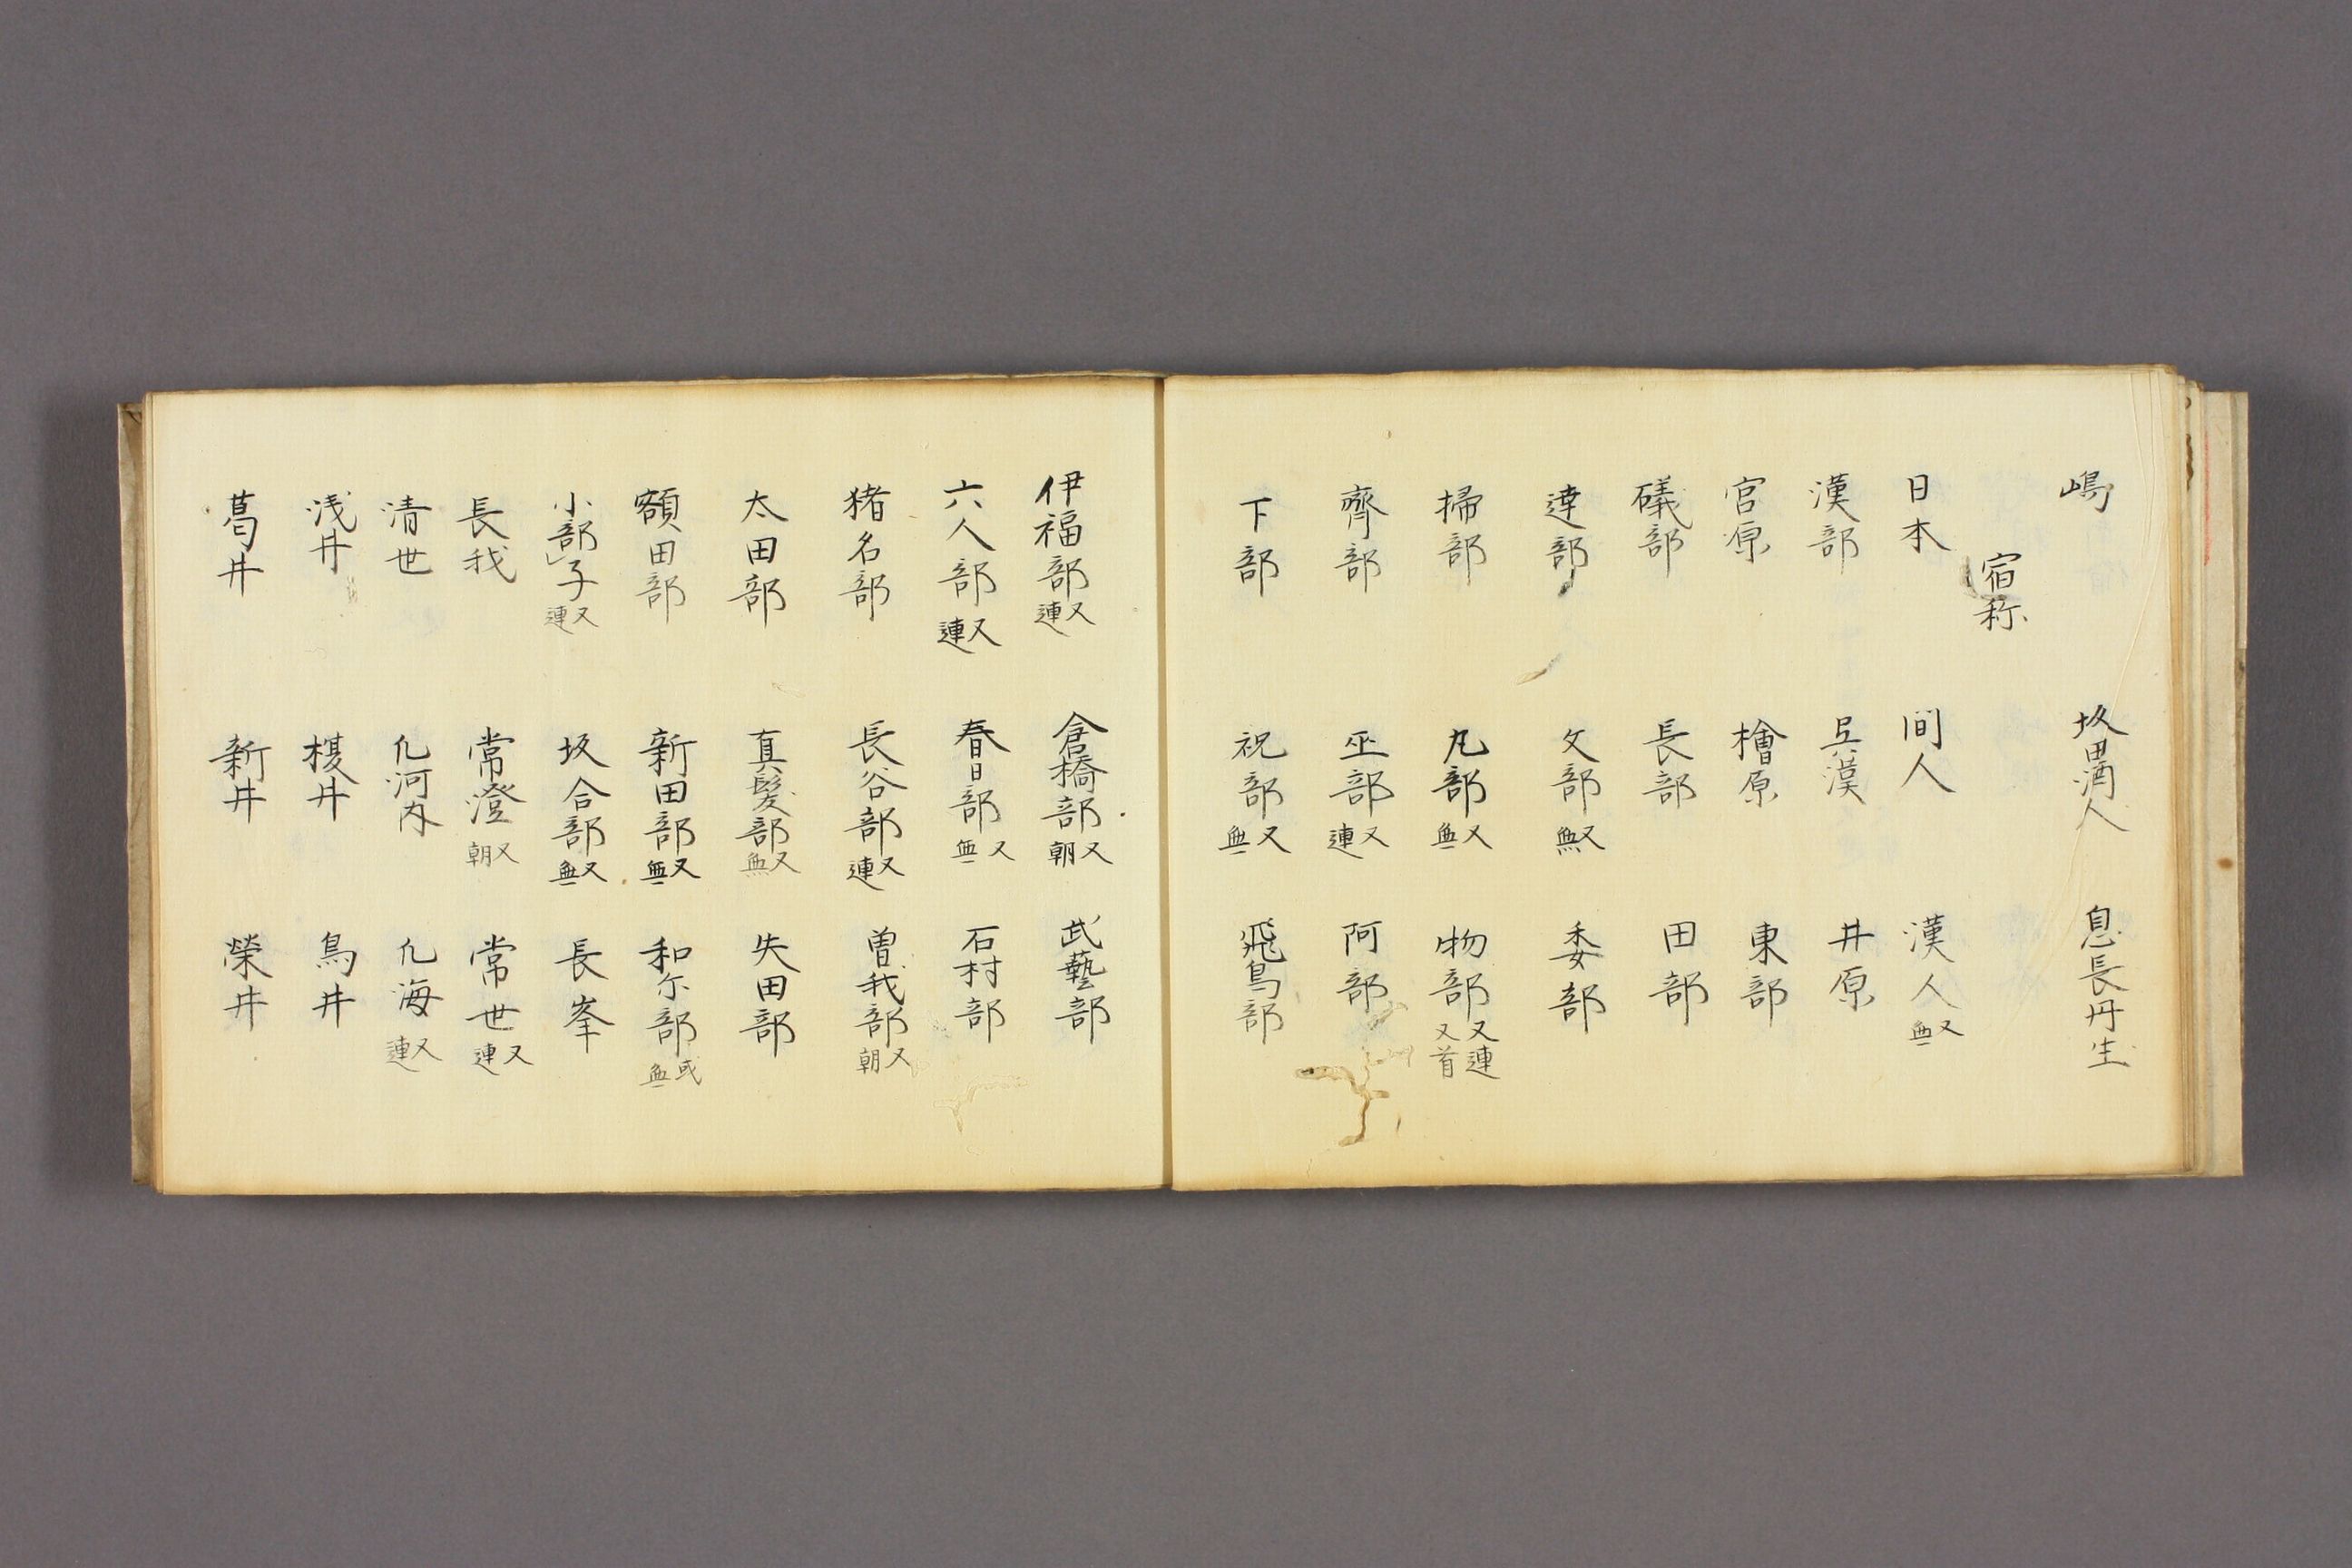 嶋 坂田酒人 息長丹生
宿祢
日本 間人 漢人又無
漢部 漢 井原
宮原 檜原 東部
礒部 長部 田部
達部 文部又無 委部
掃部 凡部又無 物部又連又首
齊部 巫部又連 阿部
下部 祝部又無 飛鳥部
伊福部又連 倉橋部又朝 武藝部
六人部又連 春日部又無 石村部
猪名部 長谷部又連 曽我部又朝
太田部 真髪部又無 失田部
額田部 新田部又無 和尓部或無
小部子又連 坂合部又無 長峯
長我 常澄又朝 常世又連
清世 凡河内 凡海又連
浅井 榎井 鳥井
葛井 新井 榮井